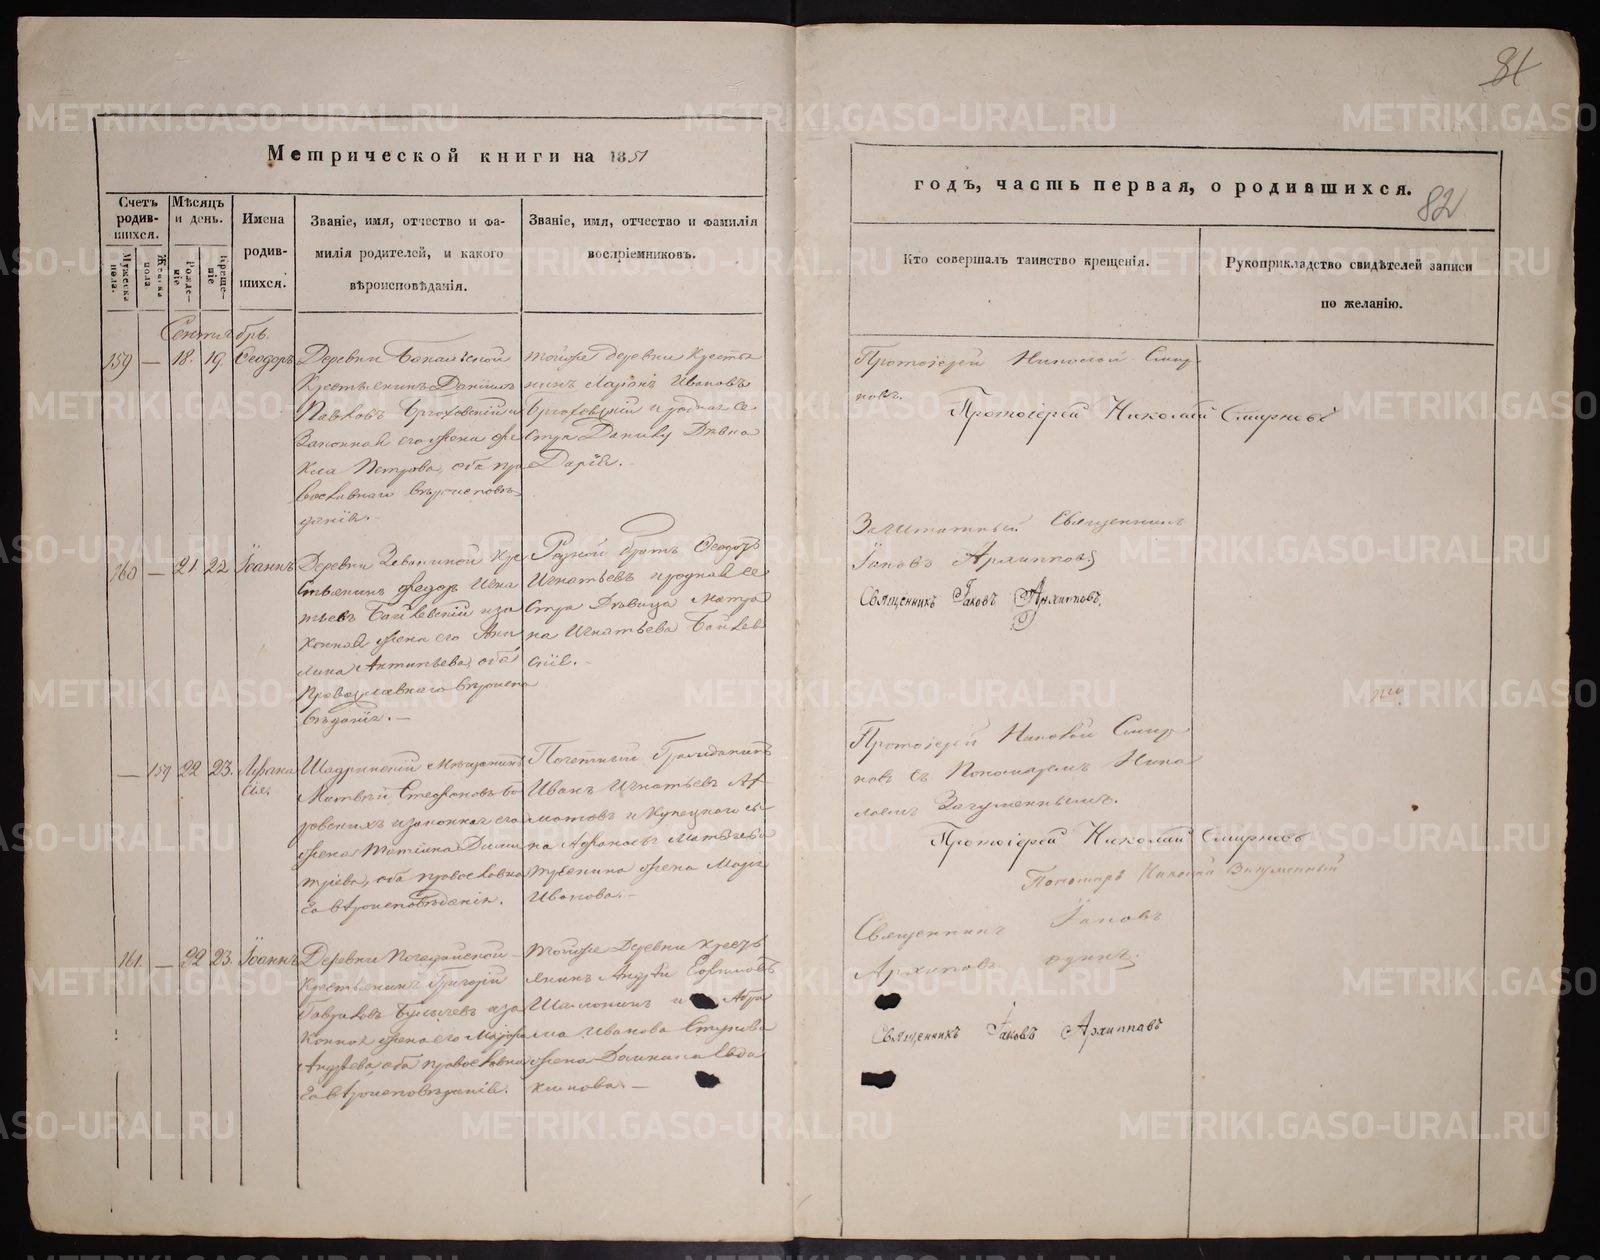 84
Метрической книги на 1851
годъ, часть первая, о родившихся.
82
Счетъ родив-шихся.
Мужеска пола.
Женска пола.
Мѣсяцъ и день.
Рожде-ніе
Креще-ніе
Имена родив-шихся.
Званіе, имя, отчество и фа-
милія родителей, и какого
вѣроисповѣданія.
Званіе, имя, отчество и фамилія
воспріемниковъ.
Кто совершалъ таинство крещенія.
Рукоприкладство свидѣтелей записи
по желанію.
Сентябрь.
159 — 18. 19. Ѳеодоръ
Деревни
Крестьянинъ Даніилъ
Павловъ и
Законная его жена Ѳе
кла Петрова, оба пра
вославнаго вѣроисповѣ
данія.
тойже деревни Кресть
янинъ Ивановъ
и родная се
стра Данилу Дѣвка
Дарія.
Протоіерей Николай Смир
новъ.
Протоіерей Николай Смирновъ
160 — 21 22 Іоаннъ
Деревни Кре
стьянинъ Ѳедоръ Игна
тьевъ и за
конная жена его Аки
лина Антипьева, оба
Православнаго вѣроиспо
вѣданія. —
Родной братъ Ѳеодоръ
Игнатьевъ и родная се
стра Дѣвица Матро
на Игнатьева
Заштатный Священникъ
Іаковъ Архипповъ
Священникъ Іаковъ Архипповъ.
— 157 22 23. Афана
сья.
Шадринскій Мѣщанинъ
Матвѣй Стефановъ Бо
ровскихъ и законная его
жена Татіана Дими
тріева, оба православна
го вѣроисповѣданія.
Почетный Гражданинъ
Иванъ Игнатьевъ
и Купецкаго сы
на Афанасья Матвѣева
жена Марія
Иванова. —
Протоіерей Николай Смир
новъ съ Пономаремъ Нико
лаемъ Загуменнымъ.
Протоіерей Николай Смирновъ
Пономарь Николай Загуменный
161. — 22 23. Іоаннъ
Деревни
Крестьянинъ Григорій
Гавриловъ и за
конная жена его Марфа
Андреева, оба православна
го вѣроисповѣданія.
тойже Деревни Кресть
янинъ Андрей Ефимовъ
и Абра
ма Иванова Ступова
жена Домна
кимова. —
Священникъ Іаковъ
Архиповъ одинъ.
Священникъ Іаковъ Архипповъ
METRIKI.GASO-URAL.RU